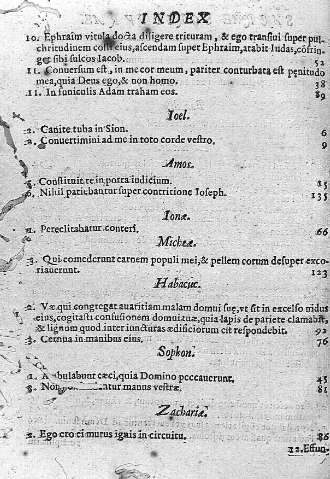 INDEX
10. Ephraim vitula docta diligere trituram, & ego transiui super pul-
chritudinem colli eius, ascendam super Ephraim, arabit Iudas, cõfrin-
get sibi sulcos Iacob. 52
11. Conuersum est, in me cor meum, pariter conturbata est pẽnitudo
mea, quia Deus ego, & non homo. 38
11. In funiculis Adam traham eos. 89
Ioel.
2. Canite tuba in Sion. 6
2. Conuertimini ad me in toto corde vestro, 9
Amos.
5. Constituite in porta iudicium. 15
6. Nihil patiebantur super contritione Ioseph. 135
Ionæ.
1. Pereclitabatur conteri. 66
Micheæ.
3. Qui comederunt carnem populi mei, & pellem eorum desuper exco-
riauerunt. 123
Habacuc.
2. Væ qui congregat auaritiam malam domui suę, vt sit in excelso nidus
eius, cogitasti confusionem domui tuæ, quia lapis de pariete clamabit,
& lignum quod inter iuncturas ædificiorum est respondebit. 92
3. Cornua in manibus eius. 76
Sophon.
1. Ambulabunt cæci, quia Domino peccauerunt. 45
3. manus vestræ. 81
Zachariæ.
2. Ego ero ei murus ignis in circuitu. 86
12. Effun-